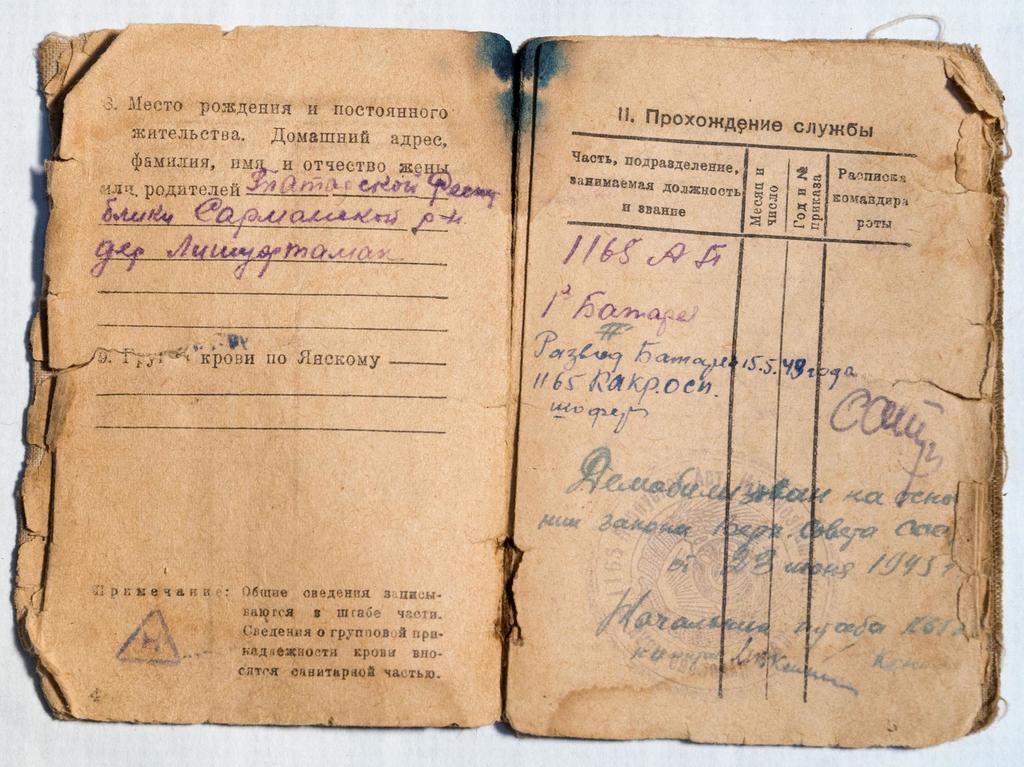 8. Место рождения и постоянного
жительства. Домашний адрес,
фамилия, имя и отчество жены
или родителей Татарской Респу
блики Сармановской р-н
дер Лишуртамак
9. Группа крови по Янскому
Примечание: Общие сведения записы-
ваются в штабе части.
Сведения о групповой при-
надлежности крови вно-
сятся санитарной частью.
Н
4
II. Прохождение службы
Часть, подразделение,
занимаемая должность
и звание
Месяц и
число
Год и №
приказа
Расписка
командира
роты
1165 АП
1я Батарея
Развед Батарея 15.5.43 года
1165
шофер
Демобилизован на осно
нии закона Верх. Совета
от 23 июня 1945 г
Начальник штаба